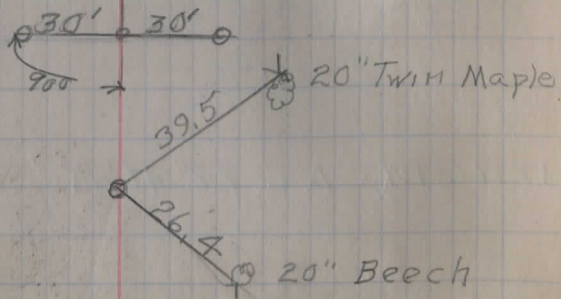 30' 30'
900
20" Twin Maple
39.5
26.4
20" Beech